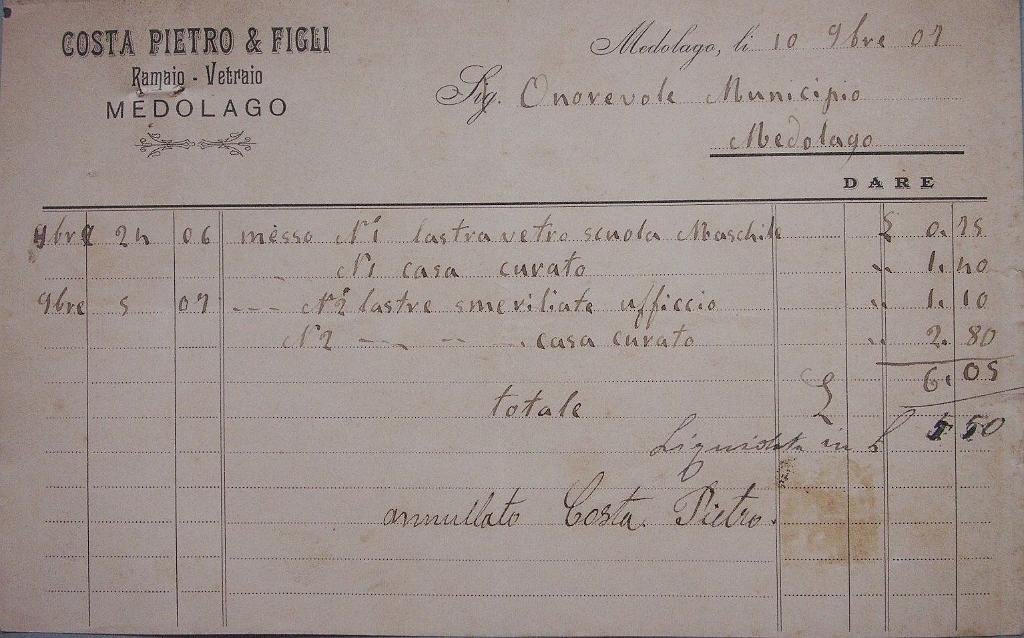 COSTA PIETRO & FIGLI
Ramaio - Vetraio
MEDOLAGO
Medolago, li 10 9bre 07
Sig. Onorevole Municipio
Medolago
DARE
9bre 24 06 messo N 1 lastra vetro scuola Maschile £ 0.75
" N 1 casa curato " 1.40
9bre 5 07 --- N 2 lastre smerilliate ufficcio " 1.10
N 2 -- -- -- casa curato " 2.80
totale £ 6.05
Liquidata in £ 5 50
annullato Costa Pietro.